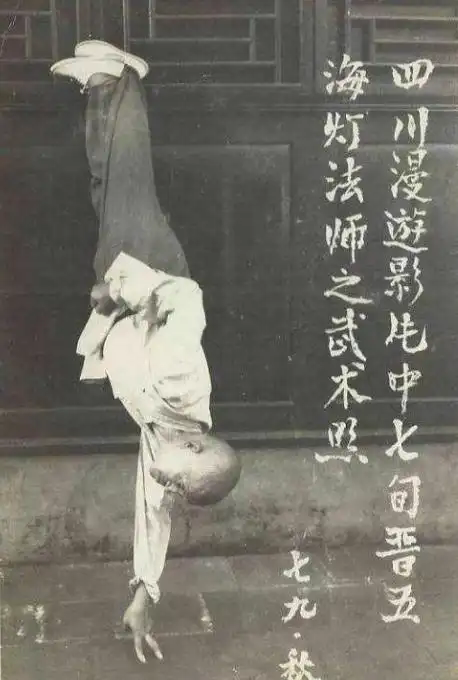 四川漫遊影片中七旬晋五
海灯法师之武术照
七九·秋